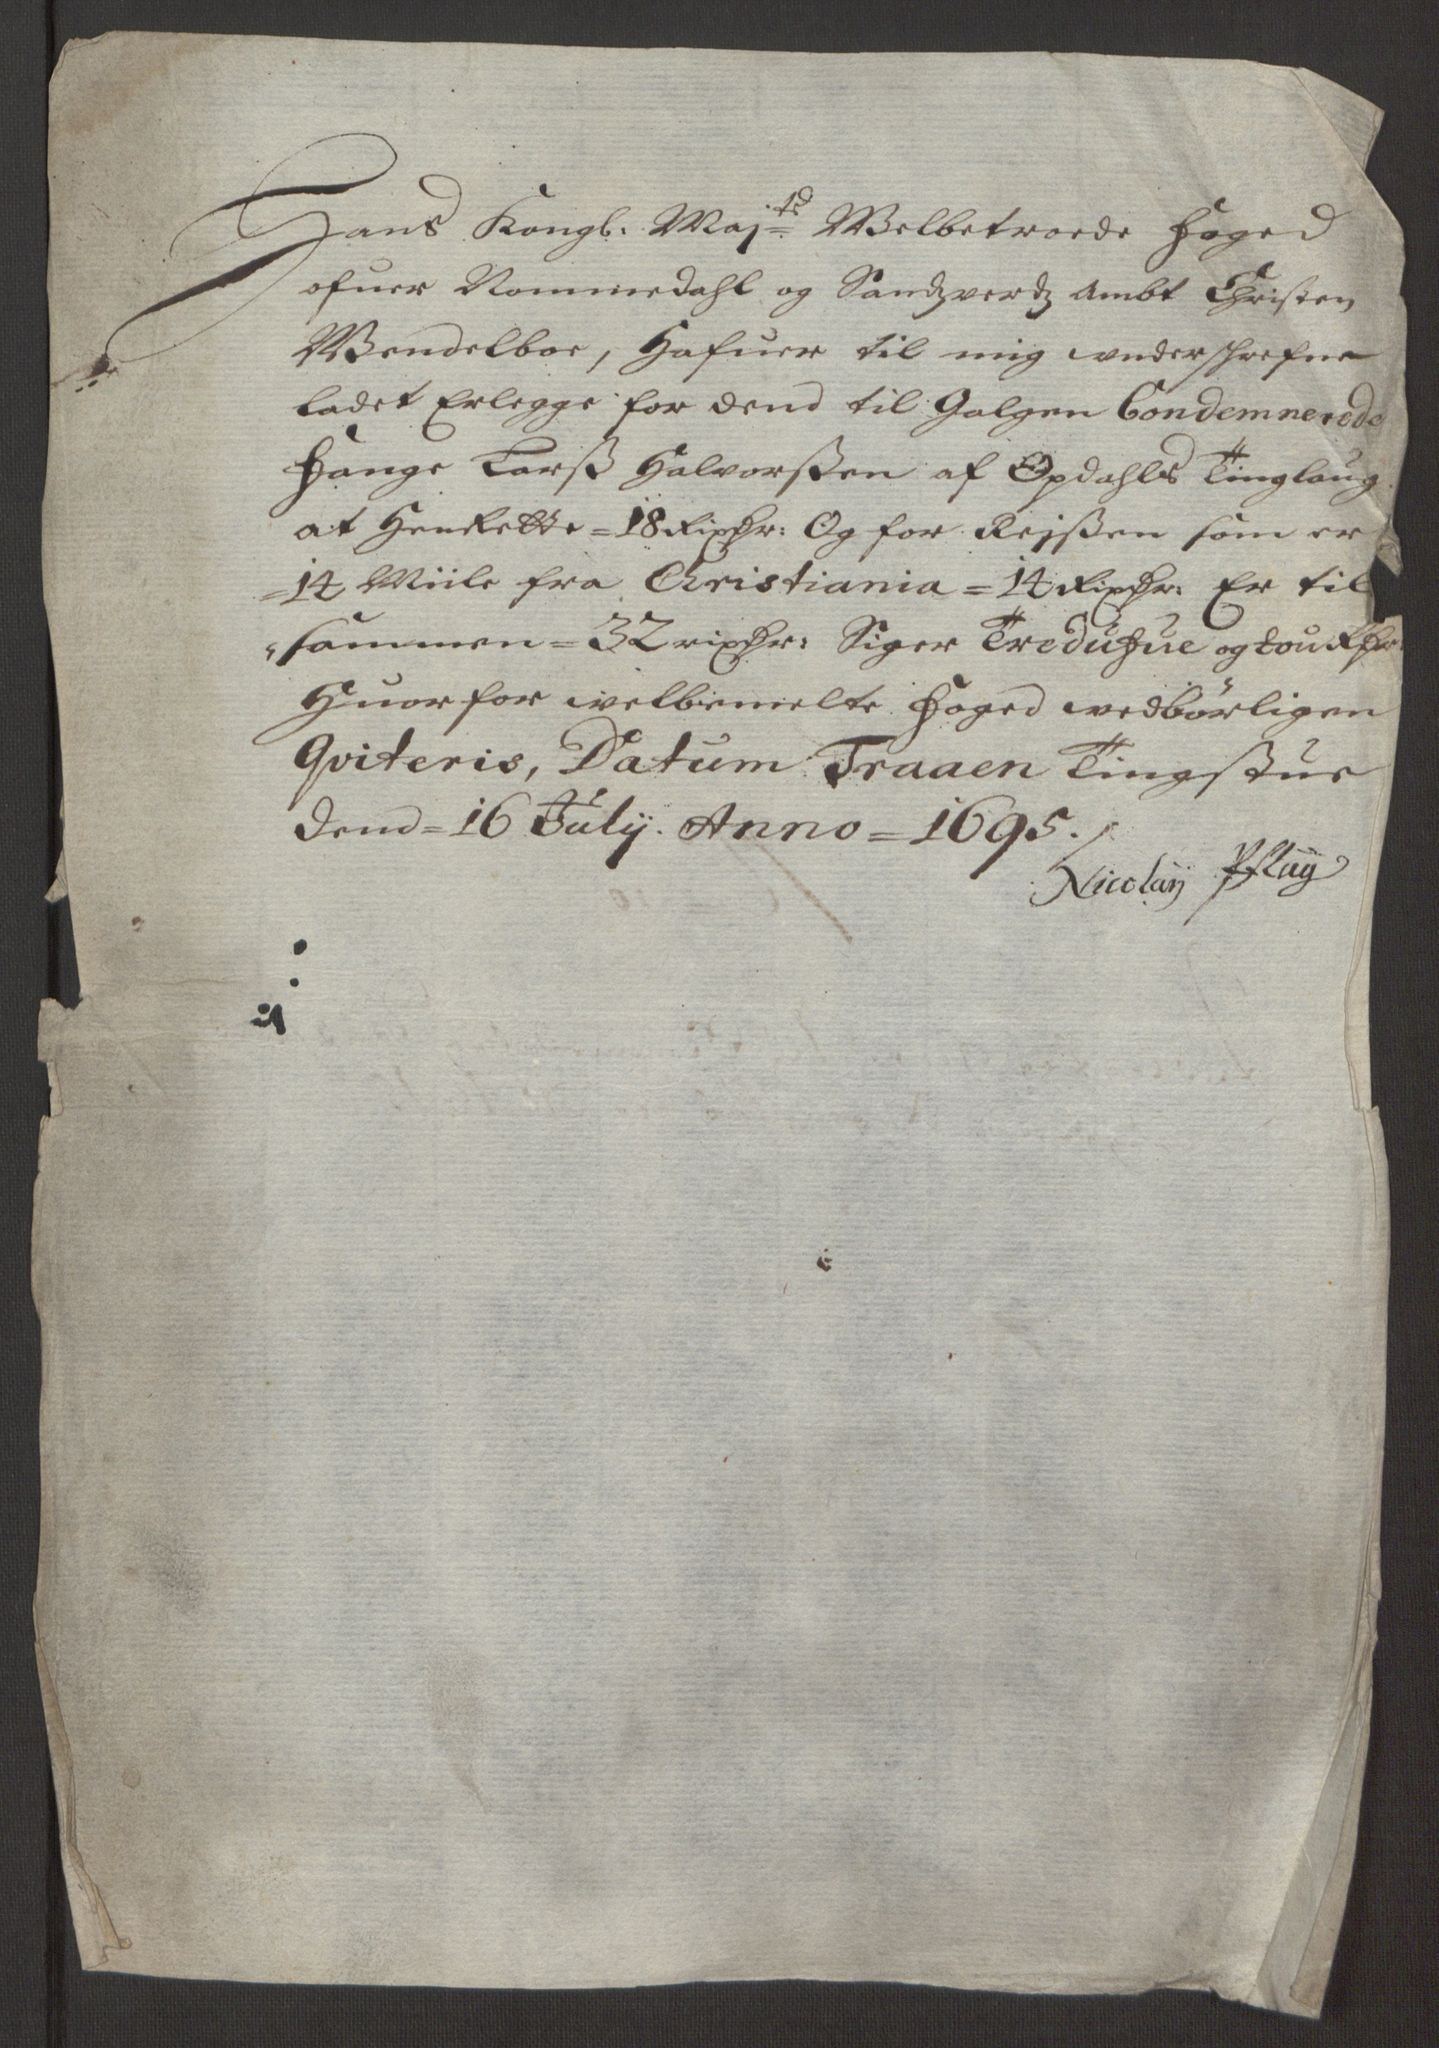 Hans Kongl: Maj:ts Welbetroede Foged
ofuer Nommedahl og Sandzverdz Ambt Christen
Wendelboe, Hafuer til mig underschrefne
ladet Erlegge for dend til Galgen Condemnerede
Fange Larß Halvorßen af Opdahls Tinglaug
at Henrette = 18 Rixdr: Og for Reißen som er
= 14 Miile fra Christiania = 14 Rixdr: Er til
sammen = 32 rixdr: Siger Tredufue og tou Rdr:
Huorfor welbemelte Foged wedbörligen
Qviteris, Datum Traaen Tingstue
dend = 16 July. Anno = 1695.
Nicolaÿ Pflug